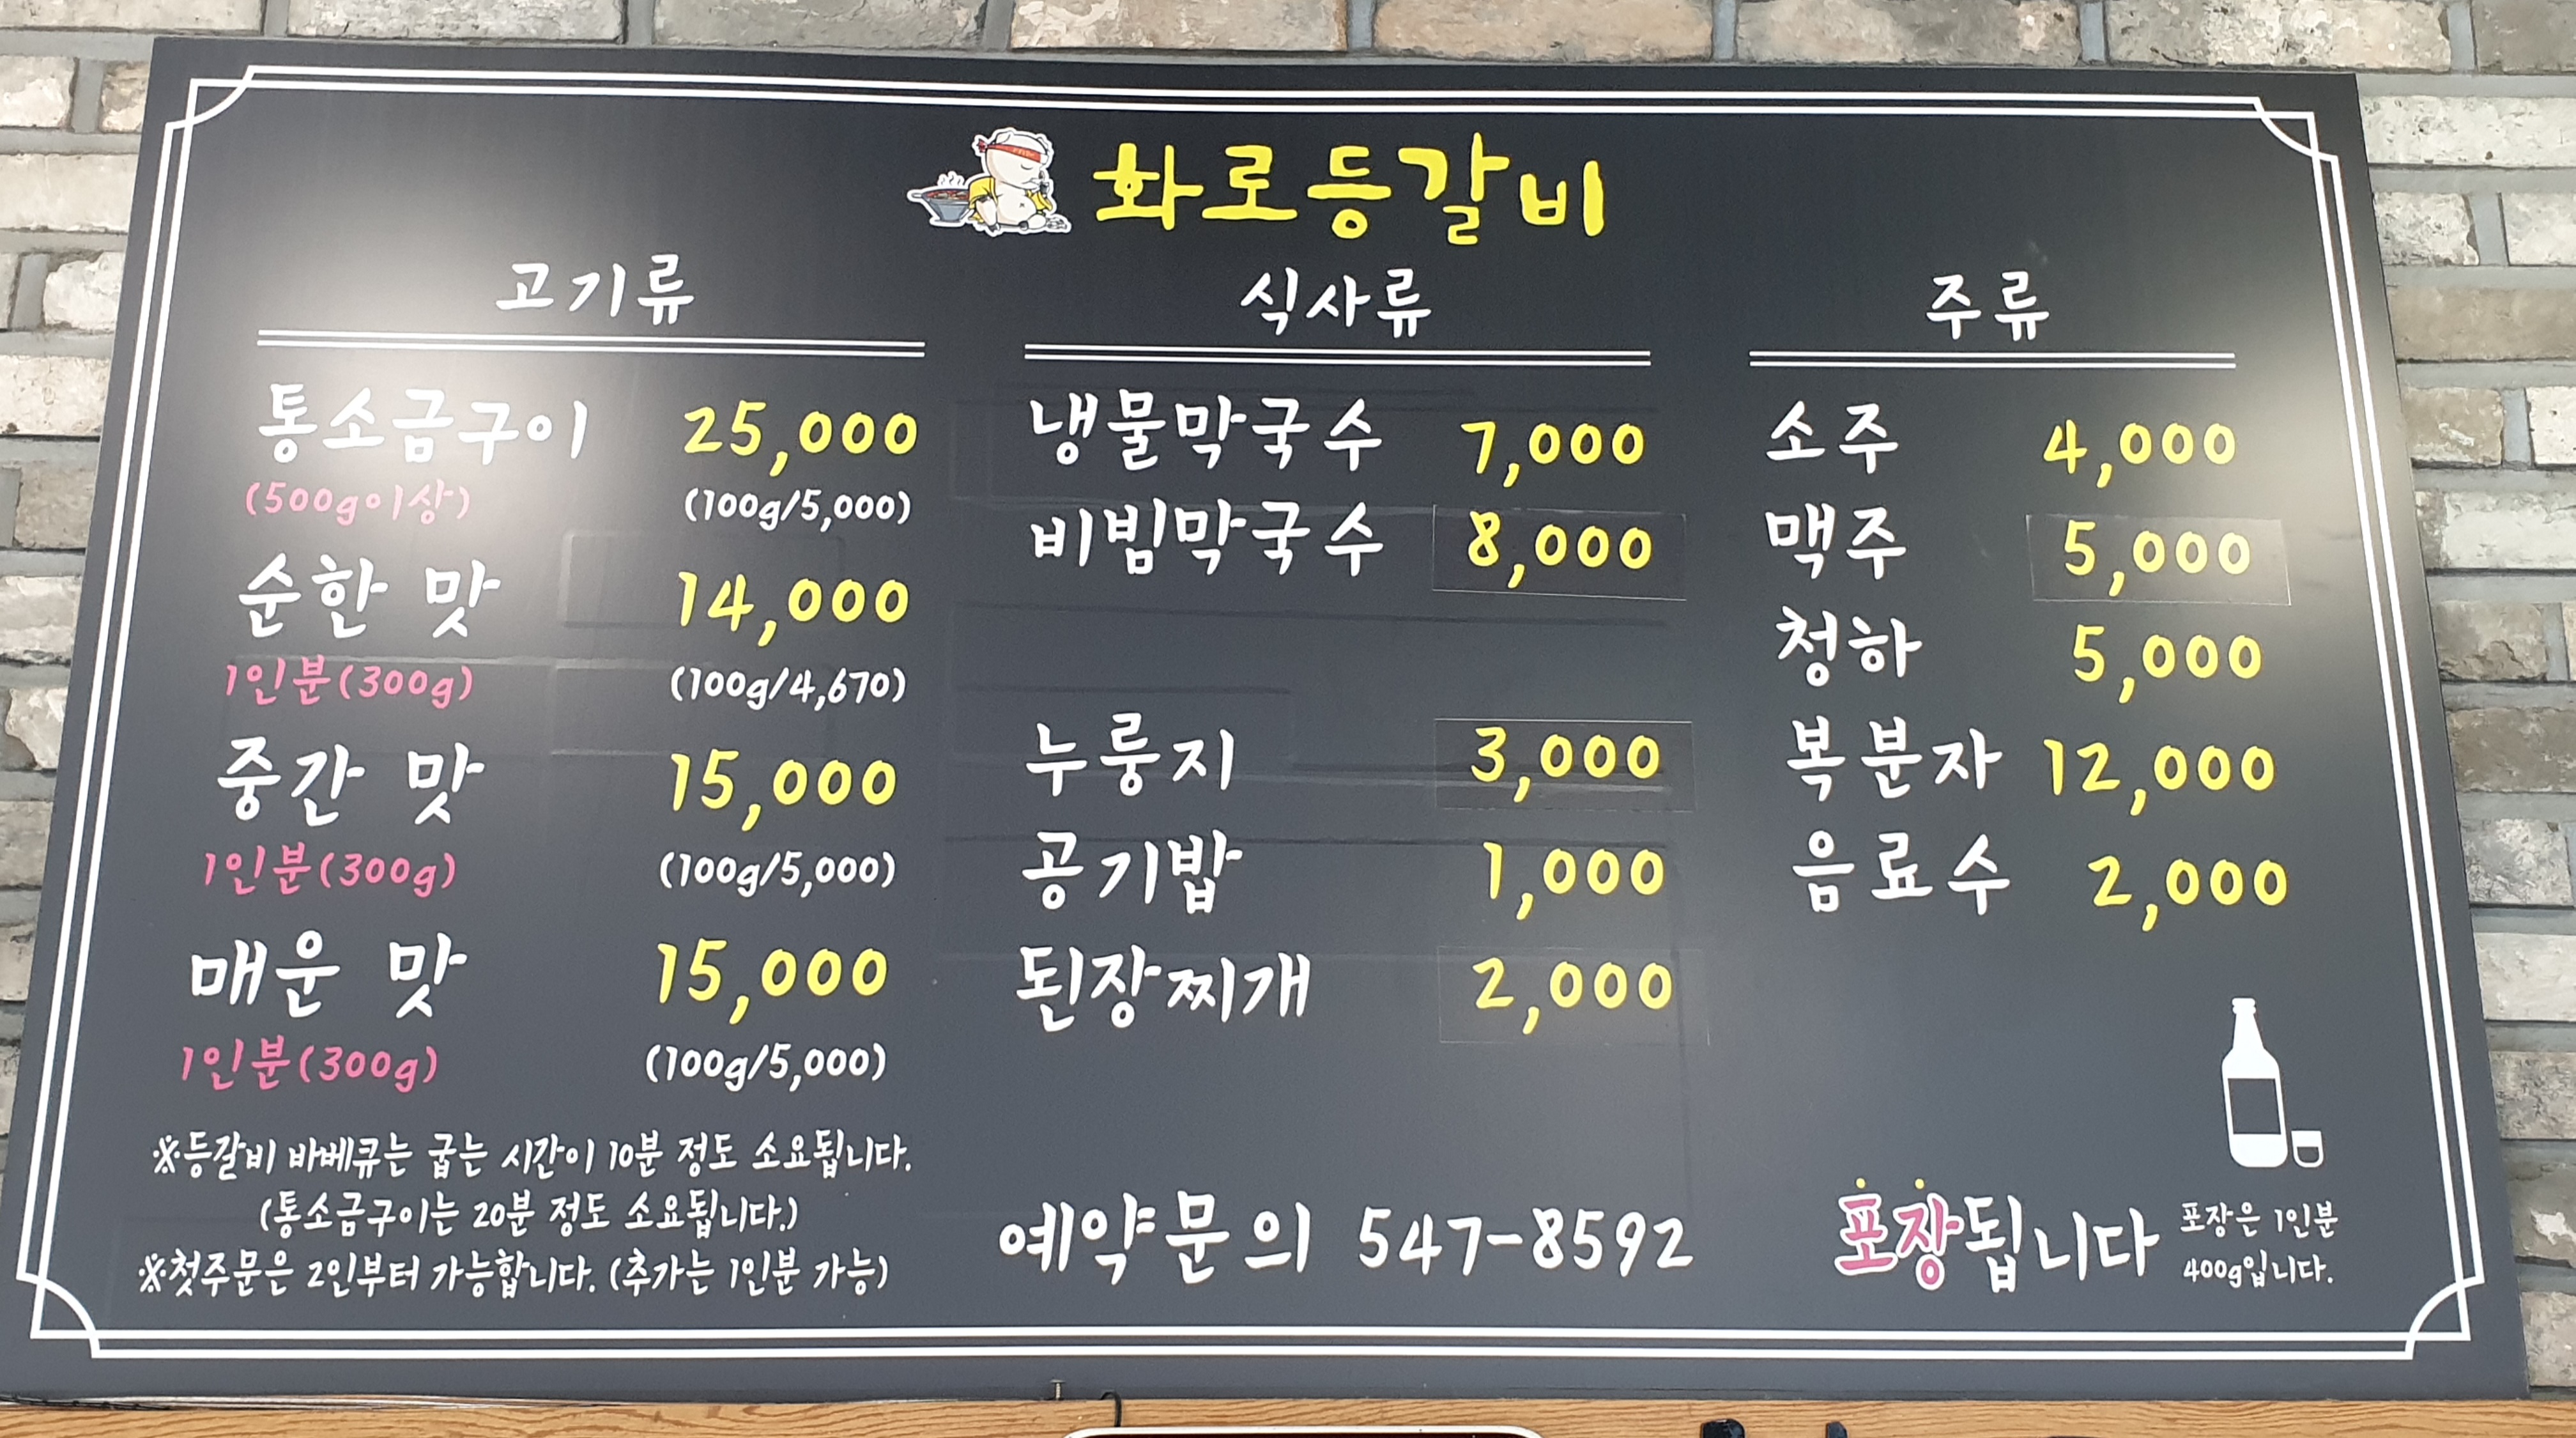 화로등갈비
고기류
통소금구이 25,000
(500g이상) (100g/5,000)
순한 맛 14,000
1인분(300g) (100g/4,670)
중간 맛 15,000
1인분(300g) (100g/5,000)
매운 맛 15,000
1인분(300g) (100g/5,000)
※등갈비 바베큐는 굽는 시간이 10분 정도 소요됩니다.
(통소금구이는 20분 정도 소요됩니다.)
※첫주문은 2인부터 가능합니다. (추가는 1인분 가능)
식사류
냉물막국수 7,000
비빔막국수 8,000
누룽지 3,000
공기밥 1,000
된장찌개 2,000
예약문의 547-8592
주류
소주 4,000
맥주 5,000
청하 5,000
복분자 12,000
음료수 2,000
포장됩니다
포장은 1인분
400g입니다.